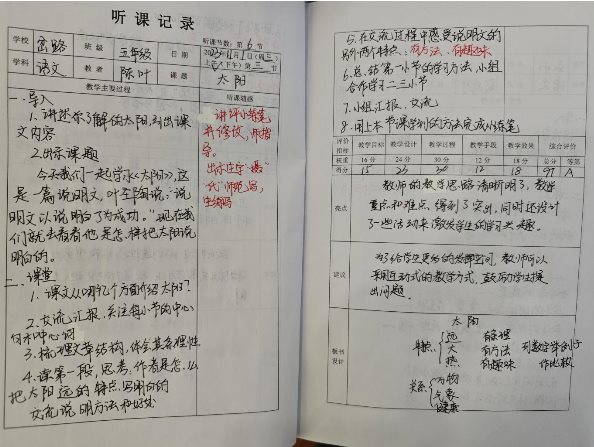 听课记录
听课节数：第6节
学校 班级 五年级 日期 11月1日（周三）
上午（下午）第三节
学科 语文 教者 陈叶 课题 太阳
教学主要过程 听课随感
一、导入
1. 讲述你了解的太阳，引出课
文内容
2. 出示课题
今天我们一起学习《太阳》，这
是一篇说明文，叶圣陶说：“说
明文以说明白了为成功。”现在我
们就去看看他是怎样把太阳说
明白的。
二、课堂
1. 课文从哪几个方面介绍太阳？
2. 交流汇报，关注每小节的中心
句和中心词
3. 梳理文章结构，体会其条理性
4. 读第一段，思考，作者是怎么
把太阳远的特点写明白的
交流说明方法和好处
讲评小练笔
并修改，师指
导。
出示庄宇“最
代”师范写，
生练写
5. 在交流过程中感受说明文的
另外两个特点：有方法、有趣味
6. 总结第一小节的学习方法，小组
合作学习二三小节
7. 小组汇报、交流
8. 用上本节课学到的方法完成小练笔
评价指标 教学目标 教学设计 教学过程 教学手段 教学效果 综合评价
权重 16分 24分 30分 12分 18分 总分 等第
得分 15 23 12 18 97 A
亮点
教师的教学思路清晰明了，教学
重点和难点得到了突出，同时还设计
了一些活动来激发学生的学习兴趣。
建议
为了给学生更好的发挥空间，教师可以
采用互动式的教学方式，鼓励学生提
出问题。
板书设计
太阳
特点 远 有条理
大 有方法 列数字 举例子
热 有趣味 作比较
关系 万物
气象